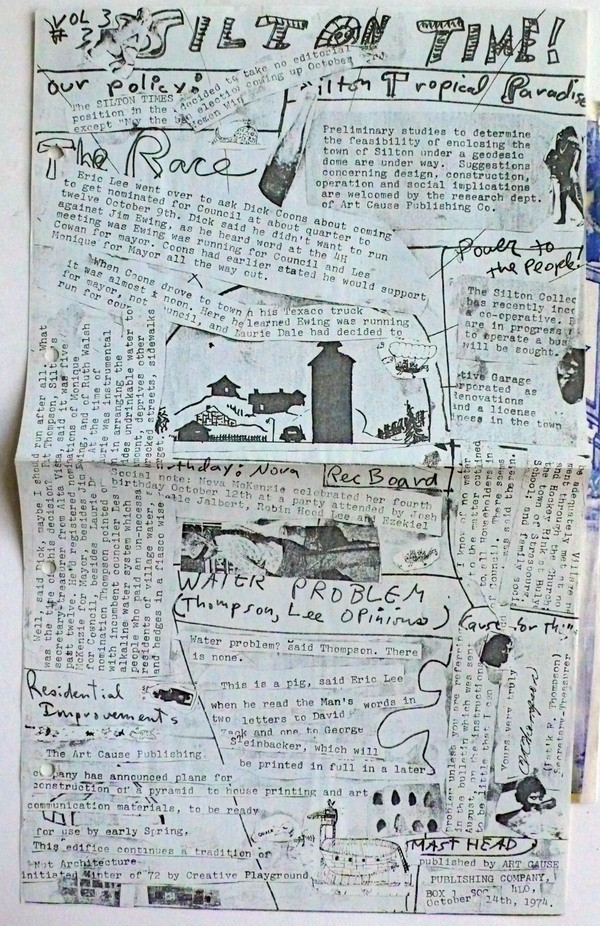 VOL 3
# 3
SILTON TIME!
our policy:
The SILTON TIMES has decided to take no editorial
position in the election coming up October
except "May the best
Women Win
Silton Tropical Paradise
Preliminary studies to determine
the feasibility of enclosing the
town of Silton under a geodesic
dome are under way. Suggestions
concerning design, construction,
operation and social implications
are welcomed by the research dept.
of Art Cause Publishing Co.
The Race
Eric Lee went over to ask Dick Coons about coming
to get nominated for Council at about quarter to
twelve October 9th. Dick said he didn't want to run
against Jim Ewing, as he heard word at the 4H
meeting was Ewing was running for Council and Les
Cowan for mayor. Coons had earlier stated he would support
Monique for Mayor all the way out.
When Coons drove to town in his Texaco truck
it was almost noon. Here he learned Ewing was running
for mayor, not council, and Laurie Dale had decided to
run for coun
Well, said Dick, maybe I should run after all. What
was the time of this decision? Pat Thompson, Silton's
secretary-treasurer from Alta Vista said it was five
past twelve. He'd registered nominations of Monique
McKenzie for Mayor, besides Jim Ewing, and of Ruth Walsh
for Council, besides Laurie D At the time of
nomination Thompson pointed o rie was instrumental
with incumbent councilor Les n in arranging the
alkaline water system which des undrinkable water to
people who paid an unnecessary mount, deprives other
residents of village water, a wrecked streets, sidewalks
and hedges in a fiasco wise get.
Power to
the People!
The Silton Collec
has recently inco
a co-operative.
are in progress
to operate a bus
will be sought.
tive Garage
rporated as
Renovations
and a license
iness in the town
rthday: Nova
Social note: Nova McKenzie celebrated her fourth
birthday October 12th at a party attended by Josh
elle Jalbert, Robin Hood Lee and Ezekiel
Rec Board
WATER PROBLEM
(Thompson, Lee Opinions)
Water problem? said Thompson. There
is none.
This is a pig, said Eric Lee
when he read the Man's words in
two letters to David
Zack and one to George
Steinbacker, which will
be printed in full in a later
Cause for Th
problem unless you are referring
in the bulletin which was sent
August, on re instructions
to be little that I am
Yours very truly
(Patrik R. Thompson)
Secretary Treasurer
Residential
Improvements
The Art Cause Publishing
company has announced plans for
construction of a pyramid to house printing and art
communication materials, to be ready
for use by early Spring,
This edifice continues a tradition of
Nut Architecture
initiated Winter of '72 by Creative Playground
MAST HEAD
published by ART CAUSE
PUBLISHING COMPANY,
BOX 1 SOG 4L0,
October 14th, 1974.